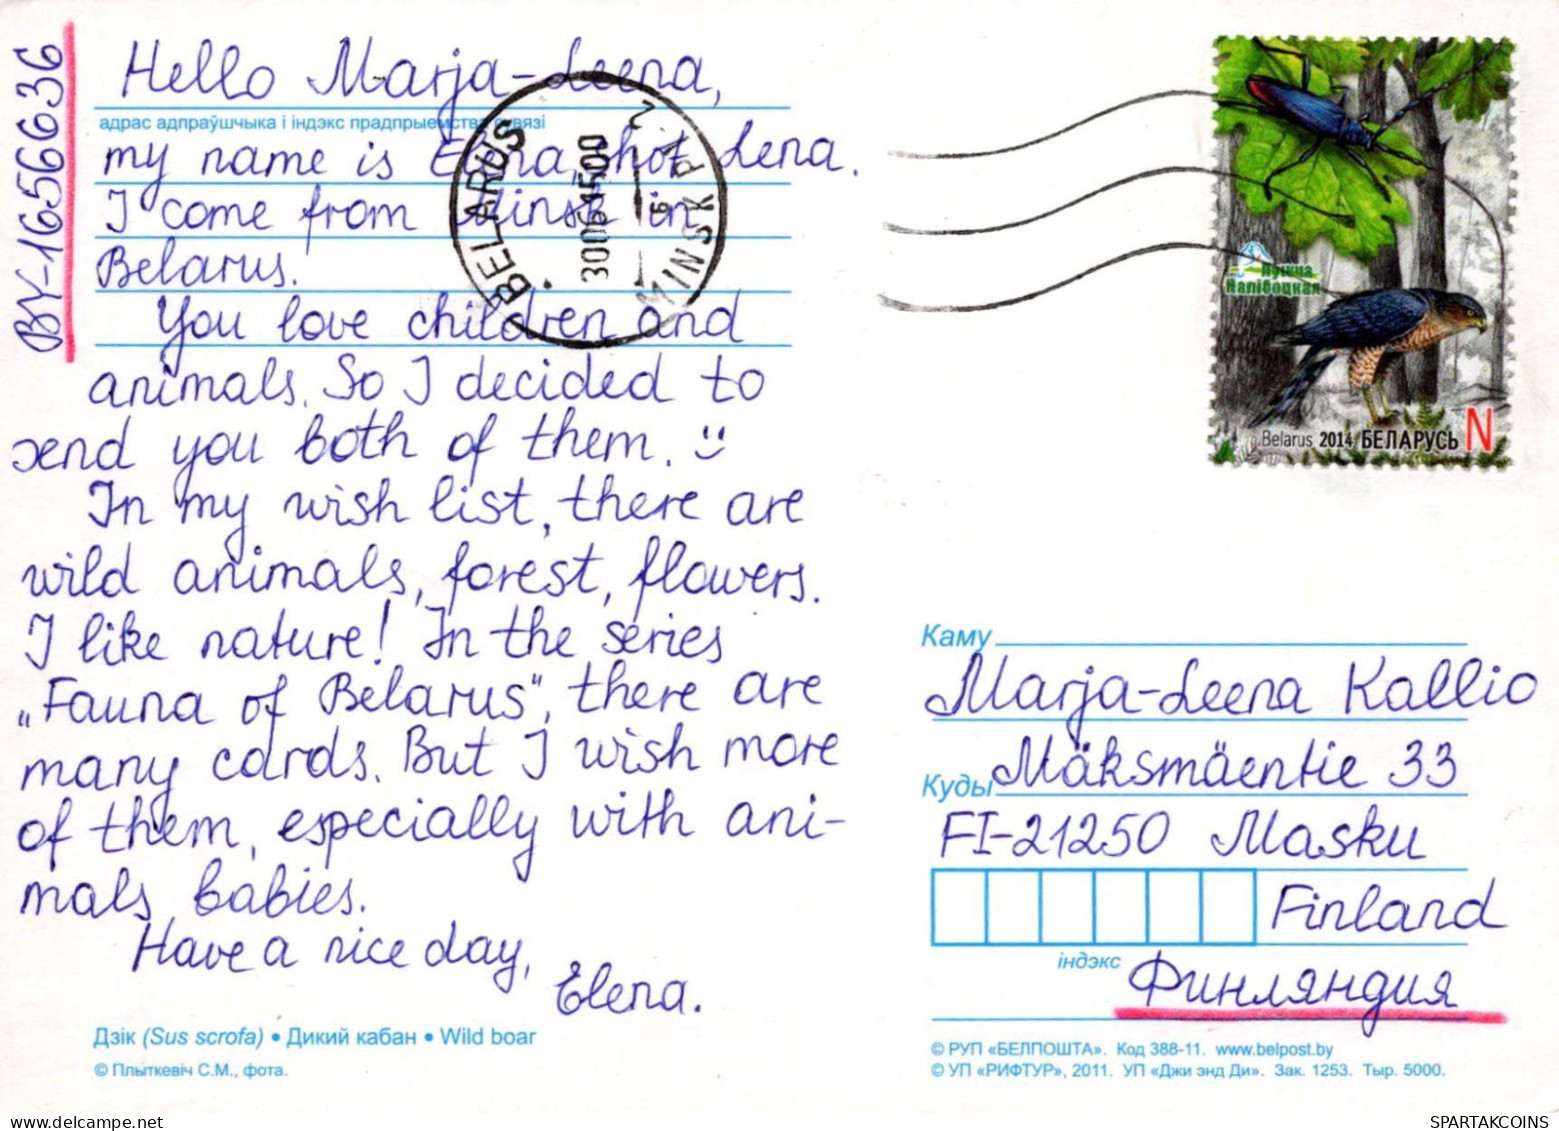 BY-1656636
Hello Marja-Leena,
адрас адпраўшчыка і індэкс прадпрыемства сувязі
my name is Elena, shot Lena.
I come from Minsk in
Belarus.
You love children and
animals. So I decided to
send you both of them. ツ
In my wish list, there are
wild animals, forest, flowers.
I like nature! In the series
„Fauna of Belarus", there are
many cards. But I wish more
of them, especially with ani-
mals babies.
Have a nice day,
Elena.
Дзік (Sus scrofa) • Дикий кабан • Wild boar
© Плыткевіч С.М., фота.
BELARUS
300614500
MINSK PI 2
Пушча
Налібоцкая
Belarus 2014 БЕЛАРУСЬ N
Каму
Marja-Leena Kallio
Куды Mäksmäentie 33
FI-21250 Masku
Finland
індэкс
Финляндия
© РУП «БЕЛПОШТА». Код 388-11. www.belpost.by
© УП «РИФТУР», 2011. УП «Джи энд Ди». Зак. 1253. Тыр. 5000.
SPARTAKCOINS